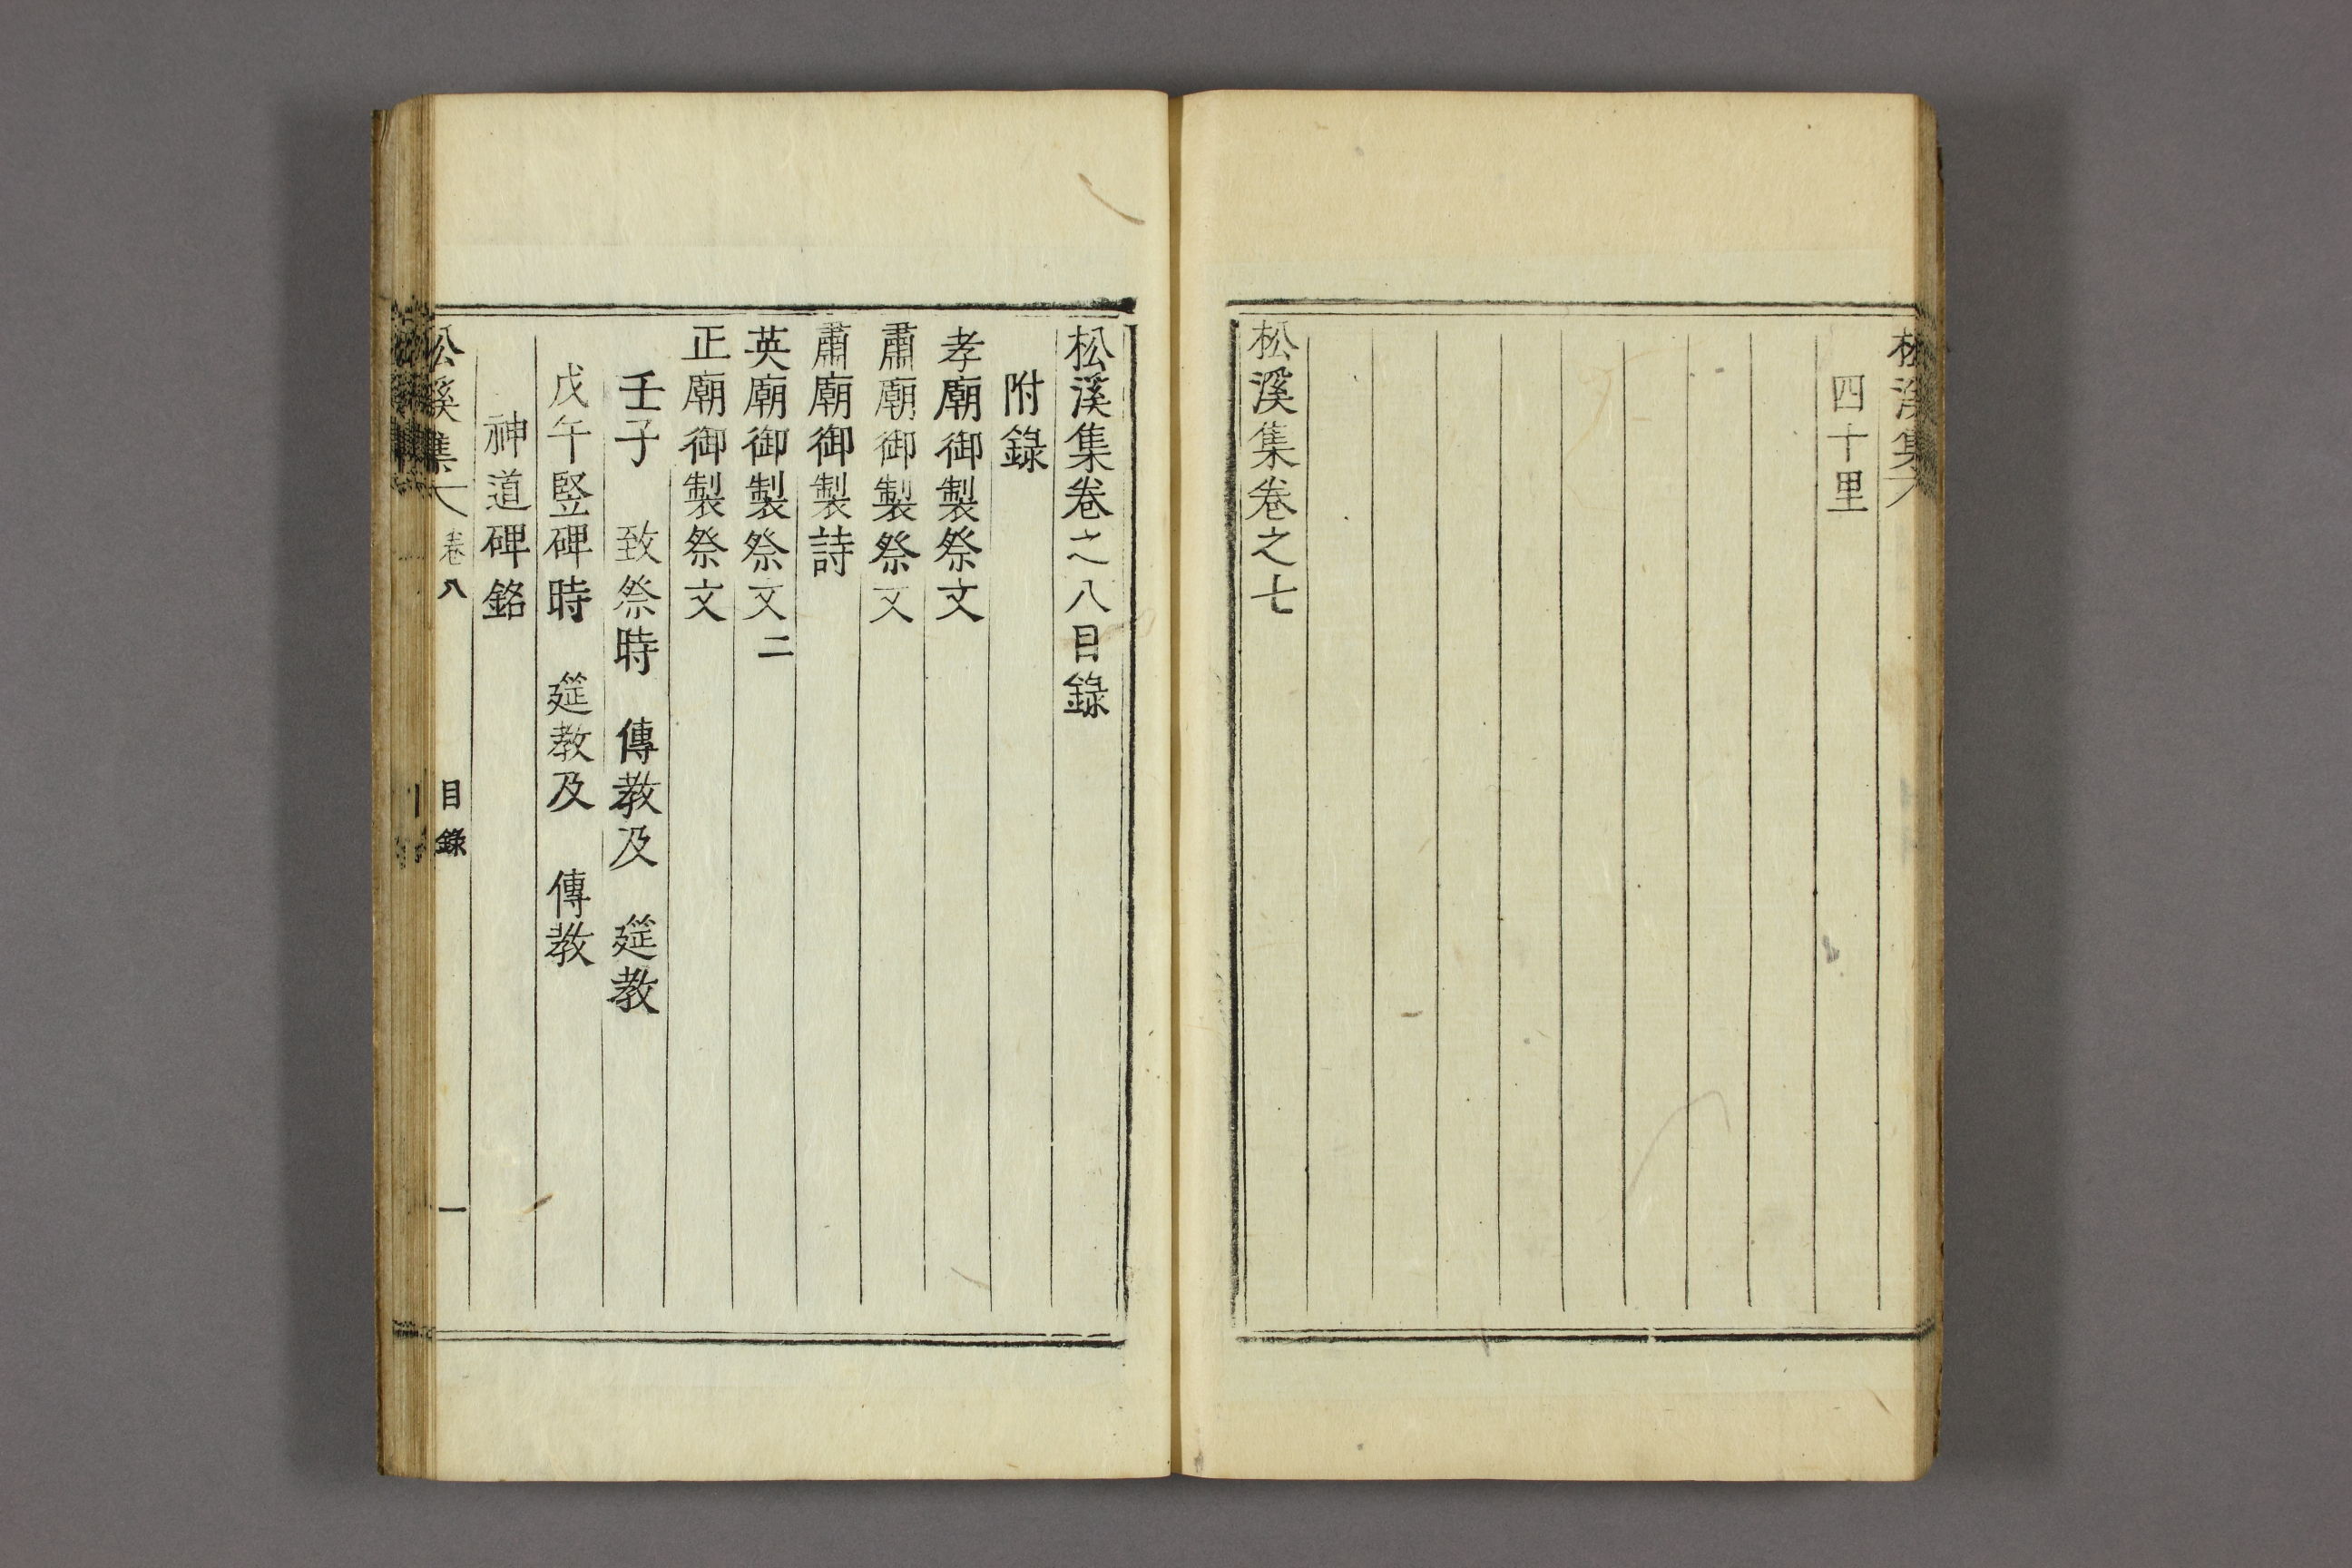 松溪集
四十里
松溪集卷之七
松溪集卷之八目錄
附錄
孝廟御製祭文
肅廟御製祭文
肅廟御製詩
英廟御製祭文二
正廟御製祭文
壬子 致祭時 傳教及 筵教
戊午竪碑時 筵教及 傳教
神道碑銘
松溪集 卷八 目錄 一